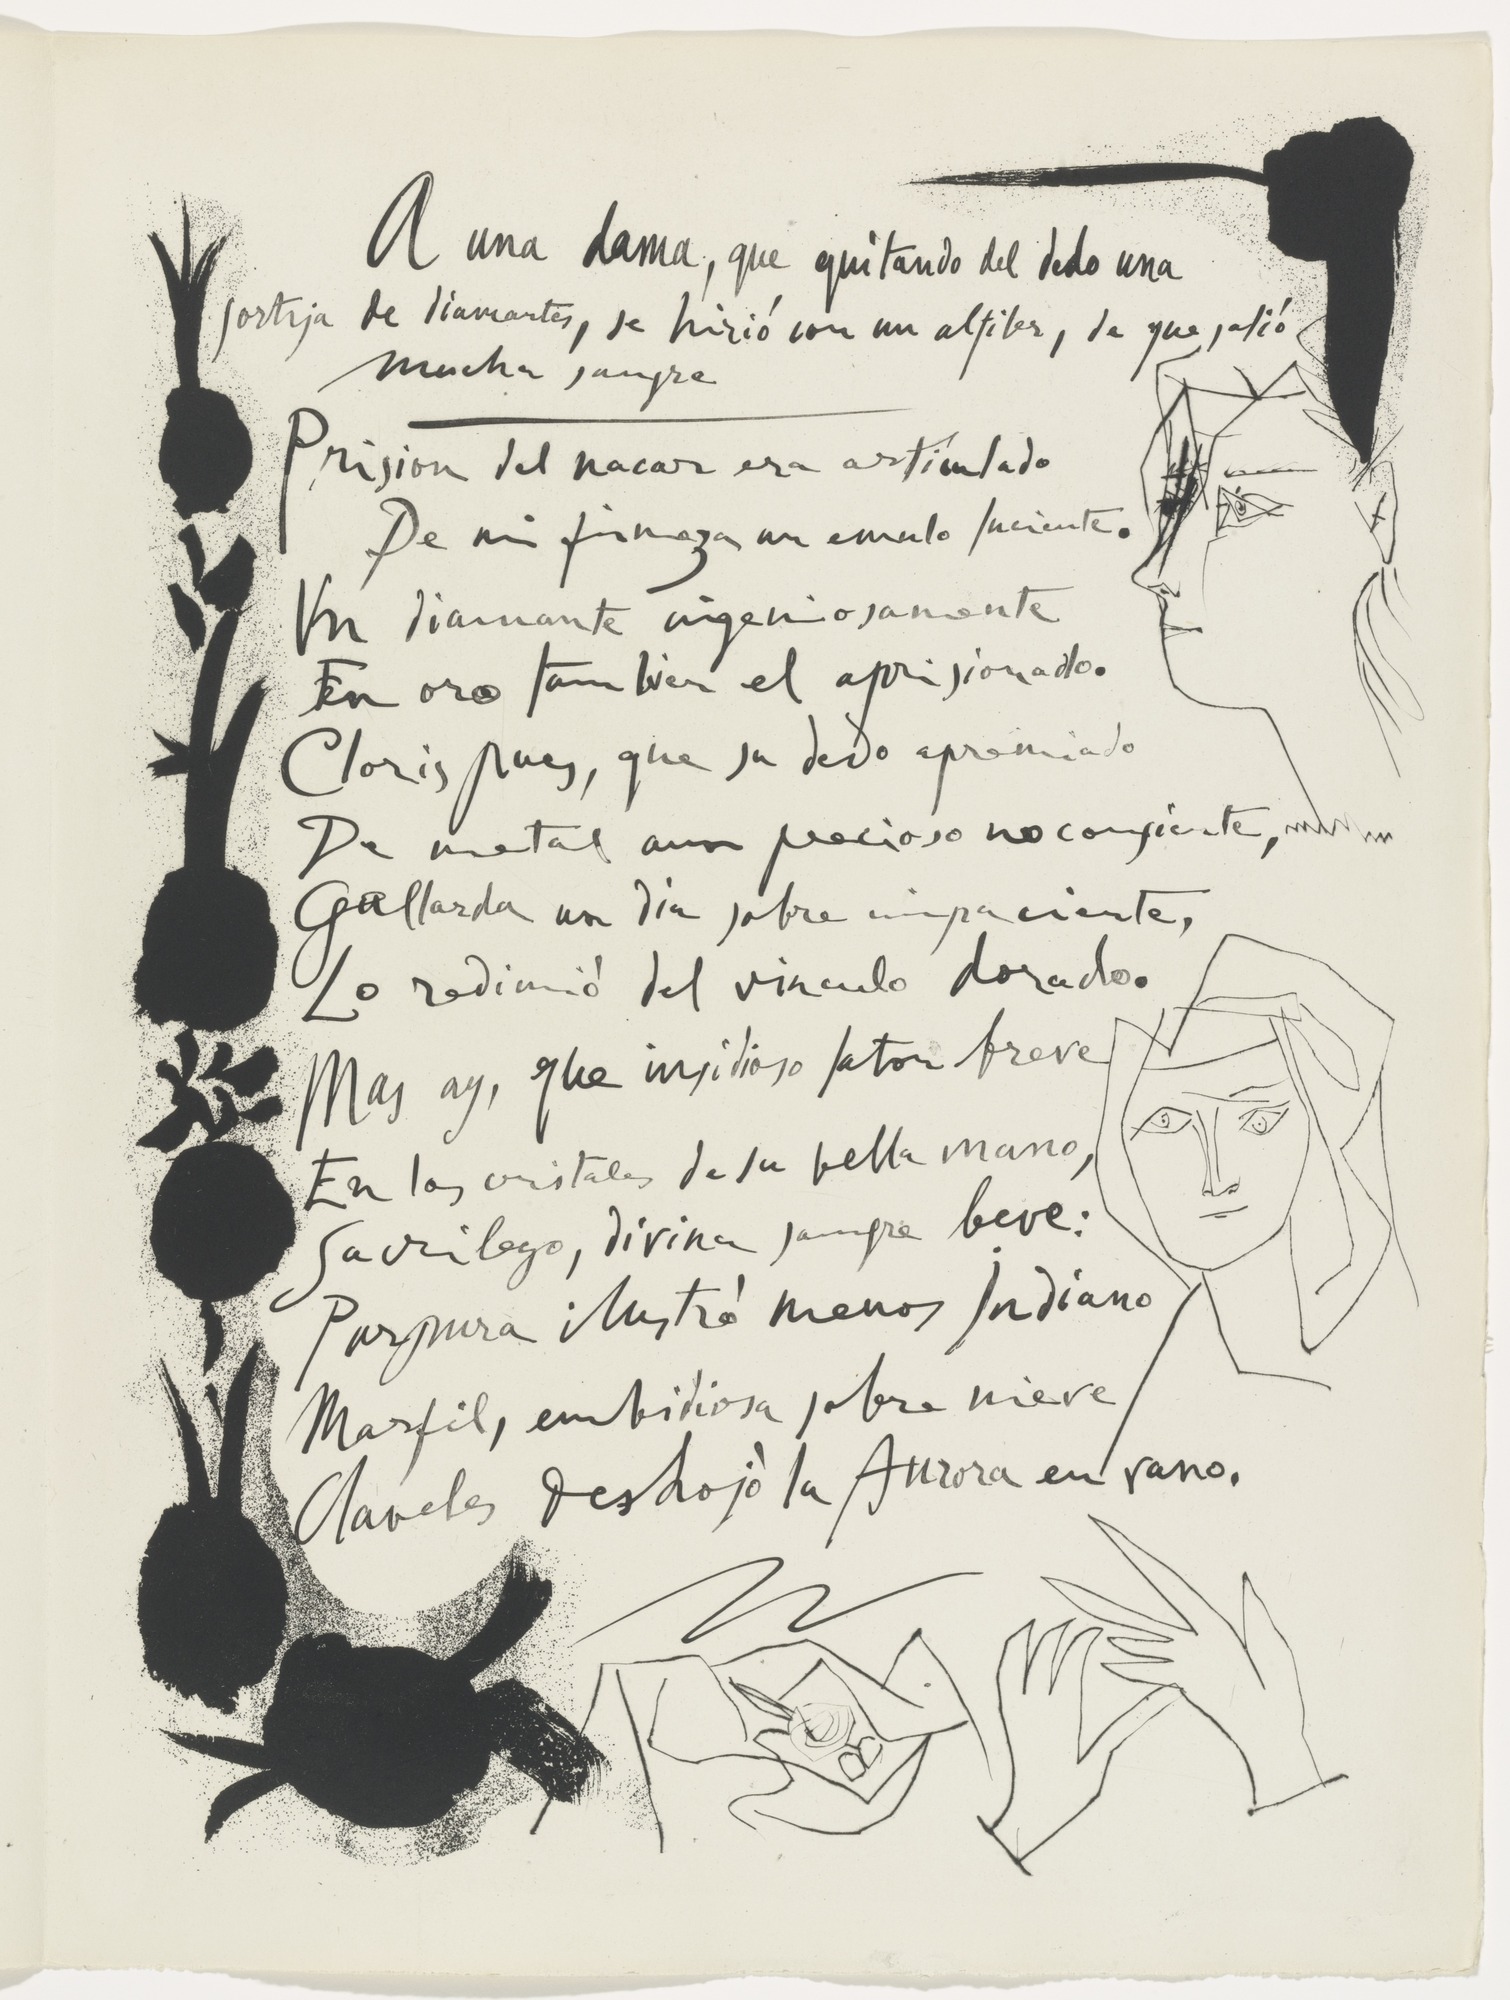 A una dama, que quitando del dedo una
sortija de diamantes, se hirió con un alfiler, de que salió
mucha sangre
Prision del nacar era articulado
De mi firmeza un emulo luciente.
Vn diamante ingeniosamente
En oro tambien el aprisionado.
Cloris pues, que su dedo apremiado
De metal aun precioso no consiente,
Gallarda un dia sobre impaciente,
Lo redimió del vinculo dorado.
Mas ay, que insidioso laton breve
En los cristales de su bella mano,
Sacrilego, divina sangre beve:
Purpura ilustró menos Indiano
Marfil, embidiosa sobre nieve
Claveles deshojò la Aurora en vano.